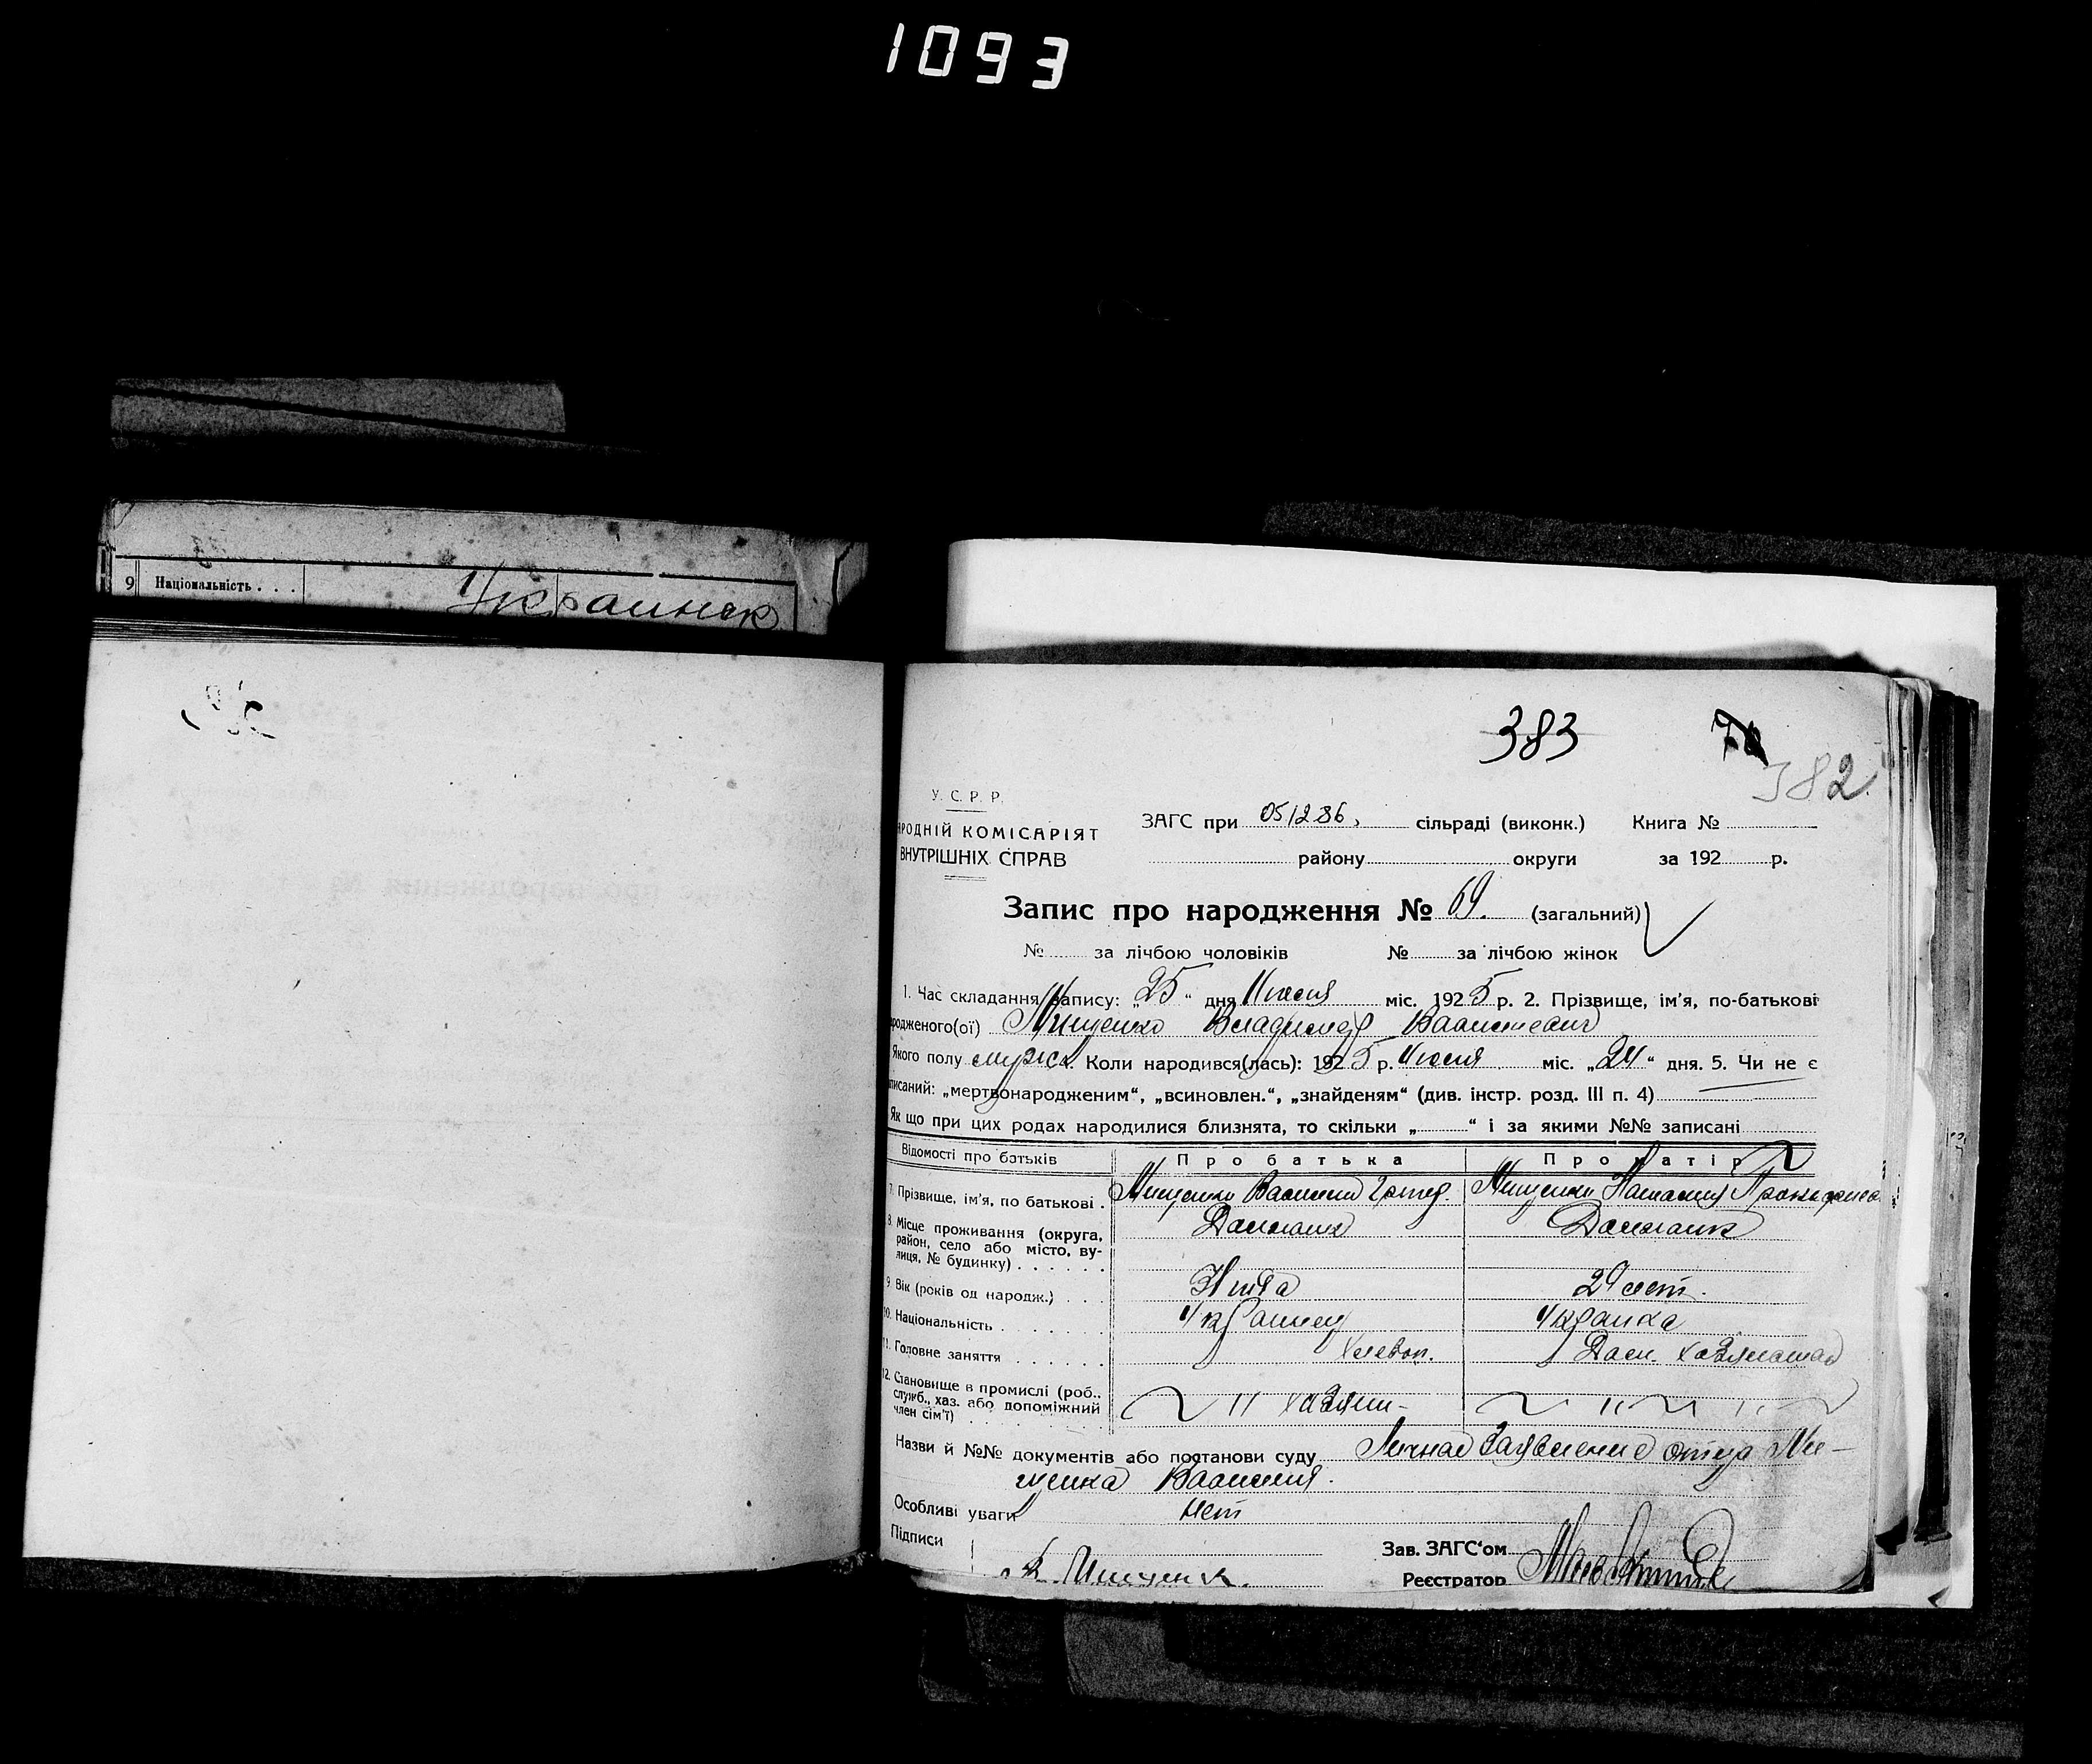 1093
9 Національність . . . Украинск
383
70
382
У. С. Р. Р.
РОДНІЙ КОМІСАРІЯТ
ВНУТРІШНІХ СПРАВ
ЗАГС при 051286, сільраді (виконк.) Книга №
району округи за 192 р.
Запис про народження № 69. (загальний)
№ за лічбою чоловіків № за лічбою жінок
1. Час складання запису: „25“ дня Июля міс. 1925 р. 2. Прізвище, ім'я, по-батькові
родженого(ої) Мищенко Владимир Васильевич
Якого полу мужск. Коли народився(лась): 1925 р. Июля міс. „24“ дня. 5. Чи не є
писаний: „мертвонародженим“, „всиновлен.“, „знайденям“ (див. інстр. розд. III п. 4)
Як що при цих родах народилися близнята, то скільки „ “ і за якими №№ записані
Відомості про батьків Про батька Про матір
7. Прізвище, ім'я, по батькові . Мищенко Василий Мищенко Наталия
8. Місце проживання (округа,
район, село або місто, ву-
лиця, № будинку) . . . . . .
9. Вік (років од народж.) . . . 29 лет.
10. Національність . . . . . . . Украинец Украинка
11. Головне заняття . . . . . . Хлебоп. Дом. хозяйство
12. Становище в промислі (роб.,
служб., хаз. або допоміжний
член сім'ї) . . . . . . . . . . " хозяин " "
Назви й №№ документів або постанови суду Личное заявление отца Ми-
щенка Василия.
Особливі уваги нет
Підписи
Зав. ЗАГС'ом
Реєстратор